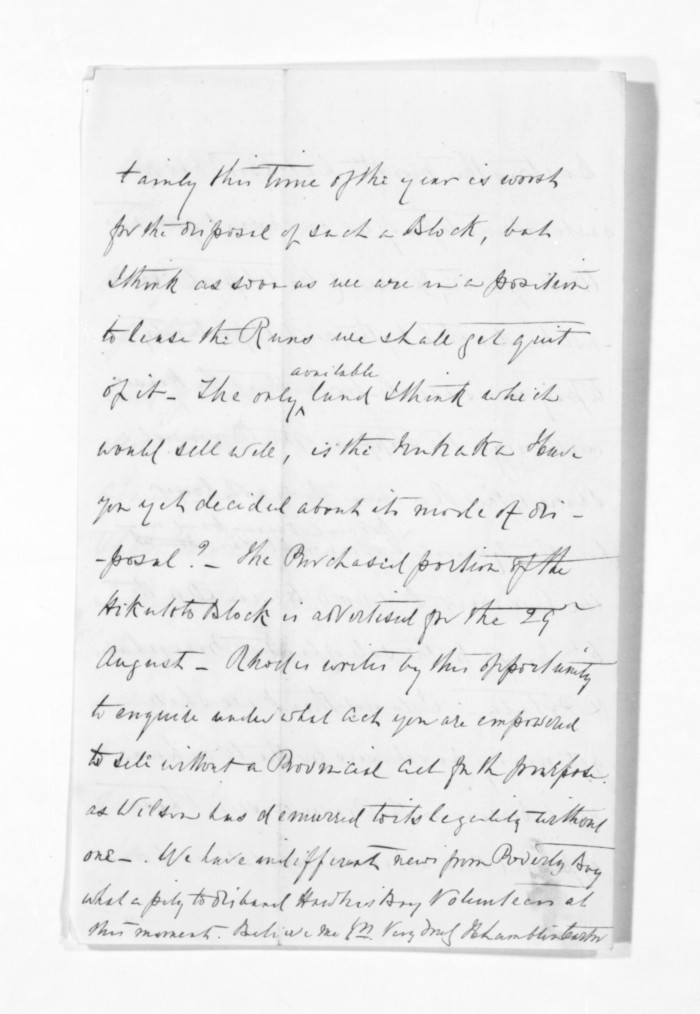 tainly this time of the year is worst
for the disposal of such a Block, but
I think as soon as we are in a position
to lease the Runs we shall get quit
of it - The only available land I think which
would sell well, is the Have
you yet decided about its mode of dis-
-posal? - The Purchased portion of the
Hikutoto Block is advertised for the 29th
August - Rhodes writes by this opportunity
to enquire under what Act you are empowered
to sell without a Provincial Act for the purpose.
as Wilson has demurred to its legality without
one -. We have indifferent news from Poverty Bay
what a pity to disband Hawkes Bay Volunteers at
this moment. Believe me Yrs Very Truly